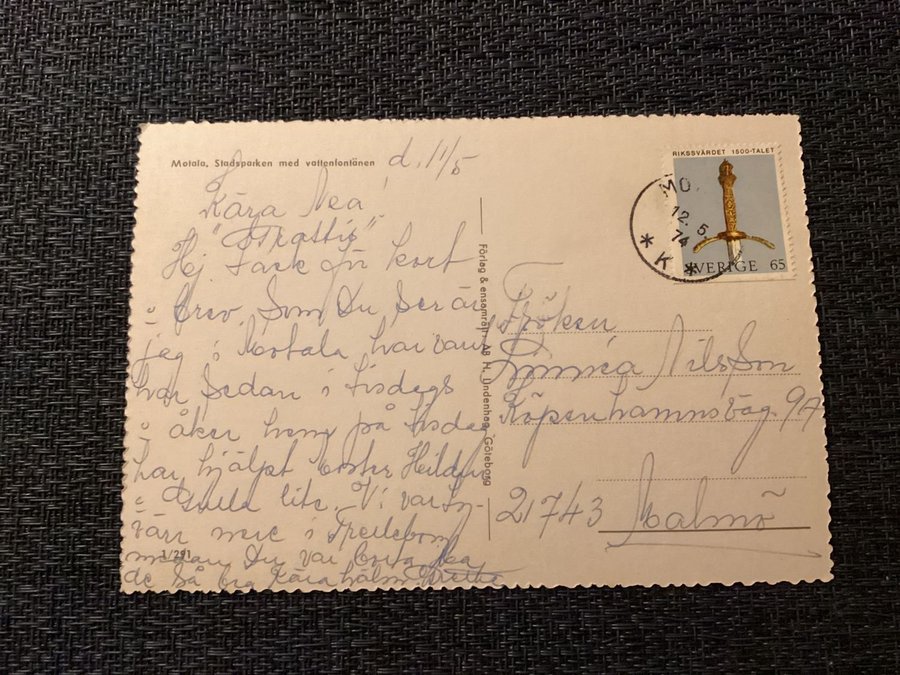 Motala, Stadsparken med vattenfontänen
d. 11/5
Kära Nea!
"Strattis"
Hej Tack för kort
o brev Som Du Ser är
jag i Motala har varit
här Sedan i Tisdags
o åker hem på tisdag
har hjälpt
o Gulla lite. Vi var
i Trelleborg
medan Du var borta
de Så bra Kära hälsn
1/291
Förlag & ensamrätt: AB H. Lindenhag, Göteborg
RIKSSVÄRDET 1500-TALET
SVERIGE 65
MO
12. 5.
74
* K *
Fröken
Linnéa Nilsson
Köpenhamnsväg. 9A
21743 Malmö